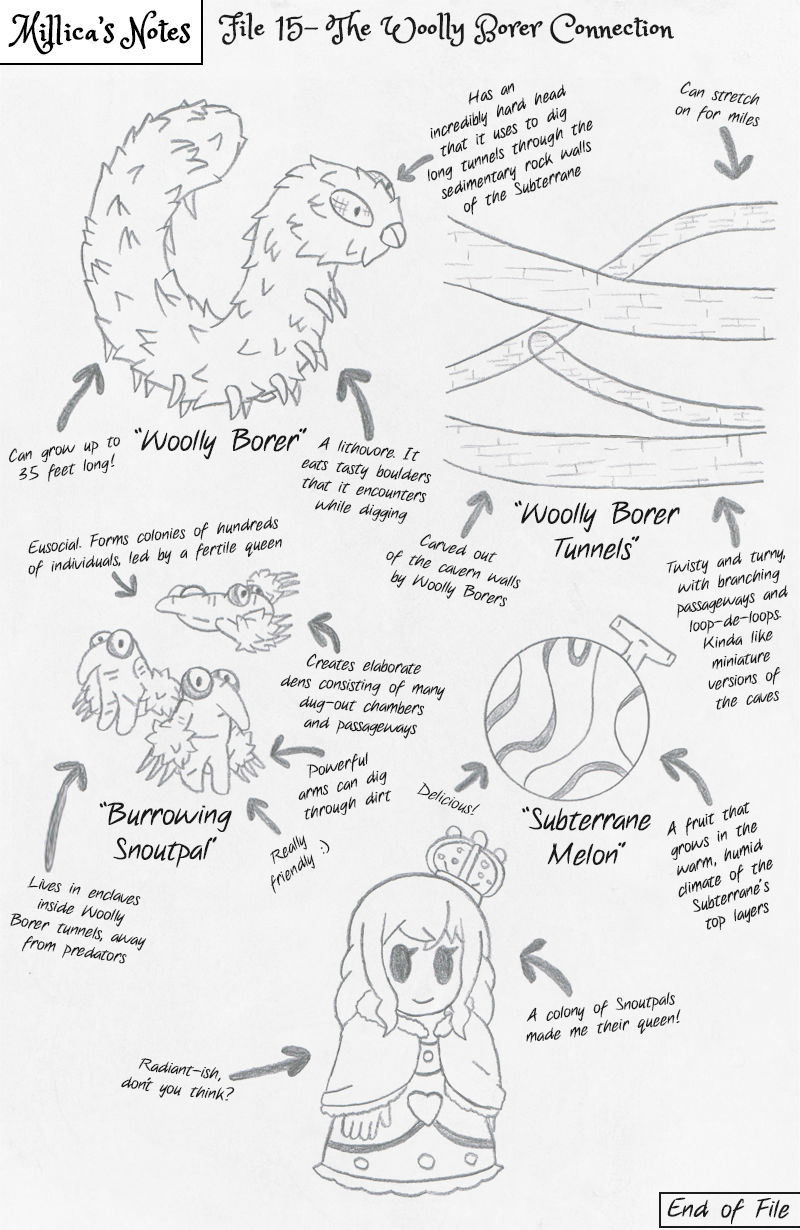 Millica's Notes
File 15– The Woolly Borer Connection
Has an
incredibly hard head
that it uses to dig
long tunnels through the
sedimentary rock walls
of the Subterrane
Can stretch
on for miles
Can grow up to
35 feet long!
"Woolly Borer"
A lithovore. It
eats tasty boulders
that it encounters
while digging
Carved out
of the cavern walls
by Woolly Borers
"Woolly Borer
Tunnels"
Twisty and turny,
with branching
passageways and
loop-de-loops.
Kinda like
miniature
versions of
the caves
Eusocial. Forms colonies of hundreds
of individuals, led by a fertile queen
Creates elaborate
dens consisting of many
dug-out chambers
and passageways
Powerful
arms can dig
through dirt
Really
friendly :)
"Burrowing
Snoutpal"
Lives in enclaves
inside Woolly
Borer tunnels, away
from predators
Delicious!
"Subterrane
Melon"
A fruit that
grows in the
warm, humid
climate of the
Subterrane's
top layers
A colony of Snoutpals
made me their queen!
Radiant-ish,
don't you think?
End of File